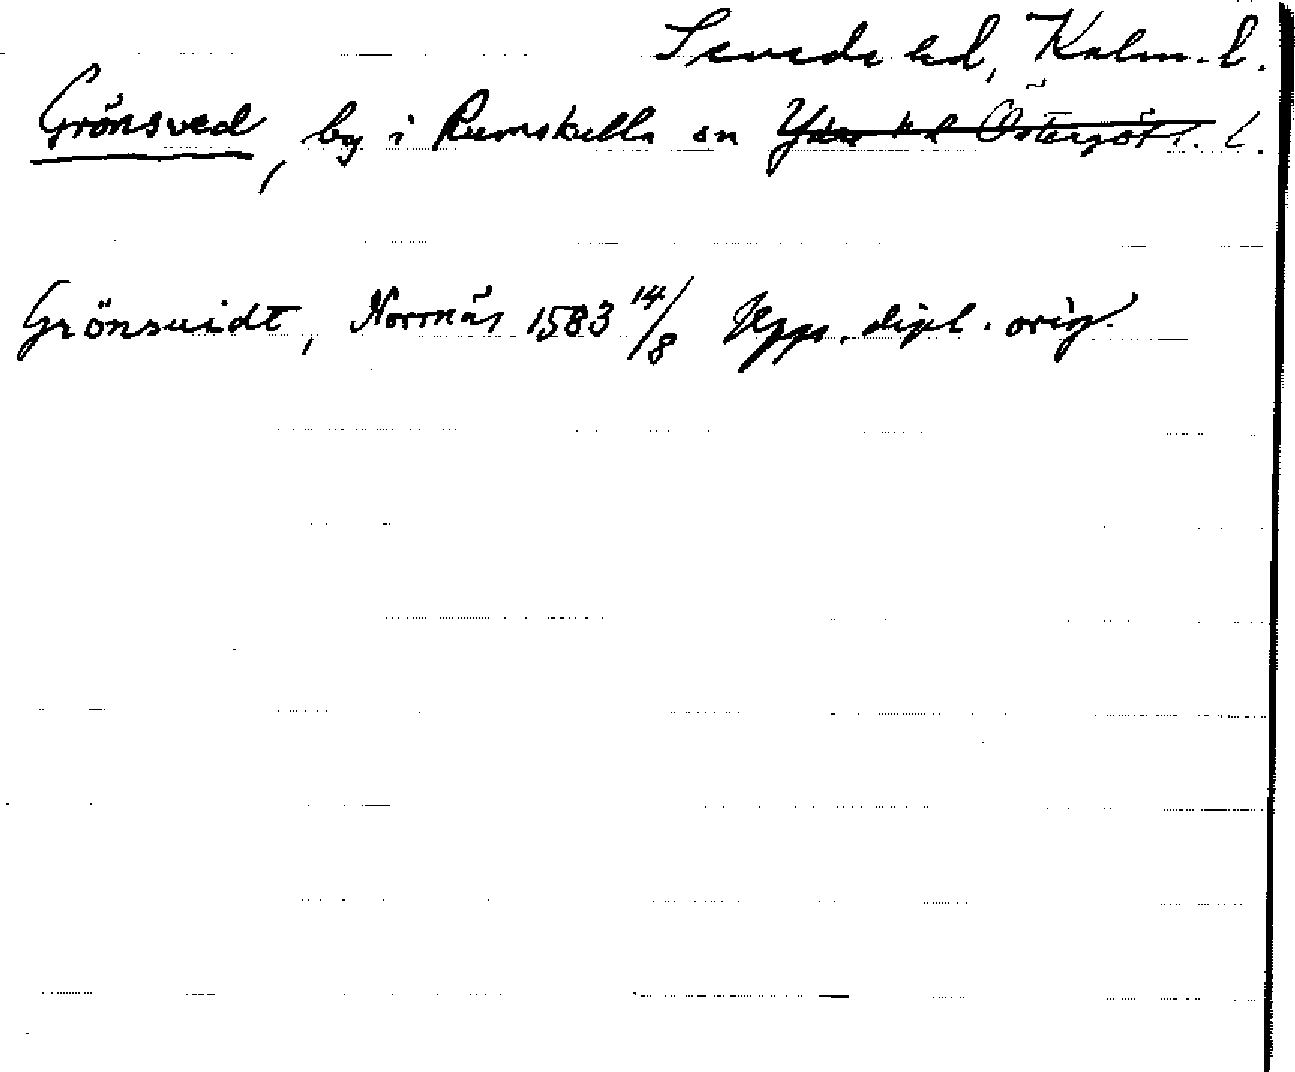 Sevede hd, Kalm. l.
Grönsved, by i Rumskulla sn Ydre hd Östergöt. l.
Grönsuidt, Norrnäs 1583 14/8 Upps. dipl. orig.